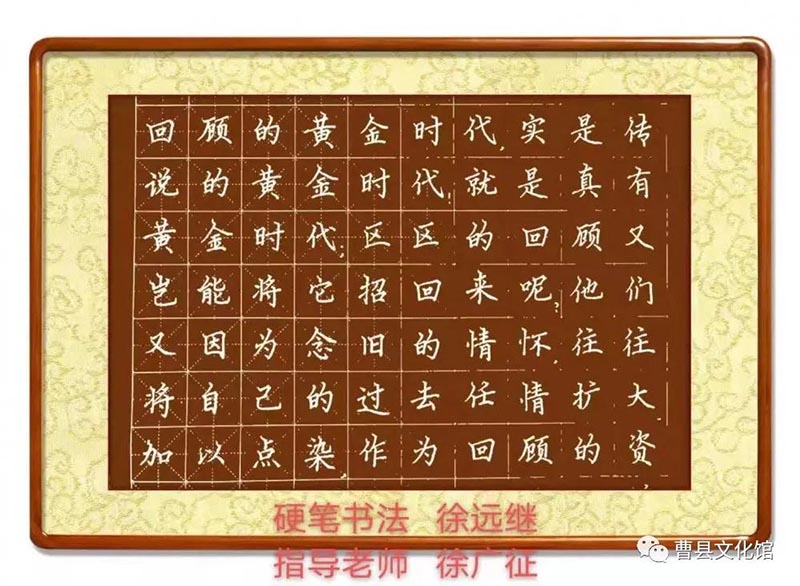 回顾的黄金时代,实是传
说的黄金时代,就是真有
黄金时代,区区的回顾又
岂能将它招回来呢,他们
又因为念旧的情怀,往往
将自己的过去任情扩大
加以点染,作为回顾的资
硬笔书法 徐远继
指导老师 徐广征
曹县文化馆